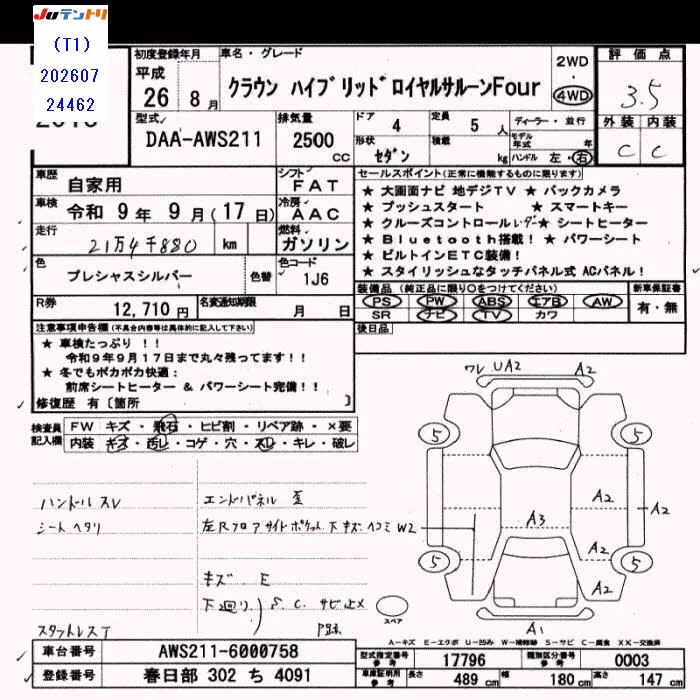 Juテントリ
(T1)
202607
24462
初度登録年月
平成
26年 8月
車名・グレード
クラウン ハイブリッド ロイヤルサルーンFour
2WD
・
4WD
評価点
3.5
外装 内装
C C
型式
DAA-AWS211
排気量
2500
CC
ドア 4
定員 5人
形状 セダン
積載 kg
ディーラー・並行
モデル年式 年
ハンドル 左・右
車歴 自家用
シフト FAT
車検 令和 9年 9月(17日)
冷房 AAC
走行 21万4千880 km
燃料 ガソリン
色 プレシャスシルバー
色替
色コード 1J6
R券 12,710円
名変通知期限 月 日
セールスポイント(正常に機能するものに限ります)
★ 大画面ナビ 地デジTV ★ バックカメラ
★ プッシュスタート ★ スマートキー
★ クルーズコントロール レーダー ★ シートヒーター
★ Bluetooth搭載! ★ パワーシート
★ ビルトインETC装備!
★ スタイリッシュなタッチパネル式 ACパネル!
装備品(純正品に限り○をつけてください)
PS PW ABS エアB AW
SR ナビ TV カワ
新車保証書
有・無
後日品
注意事項申告欄(不具合内容等は具体的に記入して下さい)
★ 車検たっぷり!!
令和9年9月17日まで丸々残ってます!!
★ 冬でもポカポカ快適:
前席シートヒーター & パワーシート完備!!
修復歴 有〔箇所 〕
検査員記入欄
FW キズ・飛石・ヒビ割・リペア跡・×要
内装 キズ・汚レ・コゲ・穴・スレ・キレ・破レ
ハンドル スレ
シート ヘタリ
スタットレスT
エンドパネル 歪
左Rフロア サイドポケット 下 キズ ヘコミ W2
キズ E
下廻り) S. C. サビ止メ
P跡
ワレ UA2
A2
5
5
A2
A2
A2
A3
A2
5
5
A2
A1
スペア
A-キズ E-エクボ U-凹み W-補修跡 S-サビ C-腐食 XX-交換済
車台番号 AWS211-6000758
登録番号 春日部 302 ち 4091
型式指定番号 参考 17796
類別区分番号 参考 0003
車庫証明用 参考
長さ 489 cm
幅 180 cm
高さ 147 cm